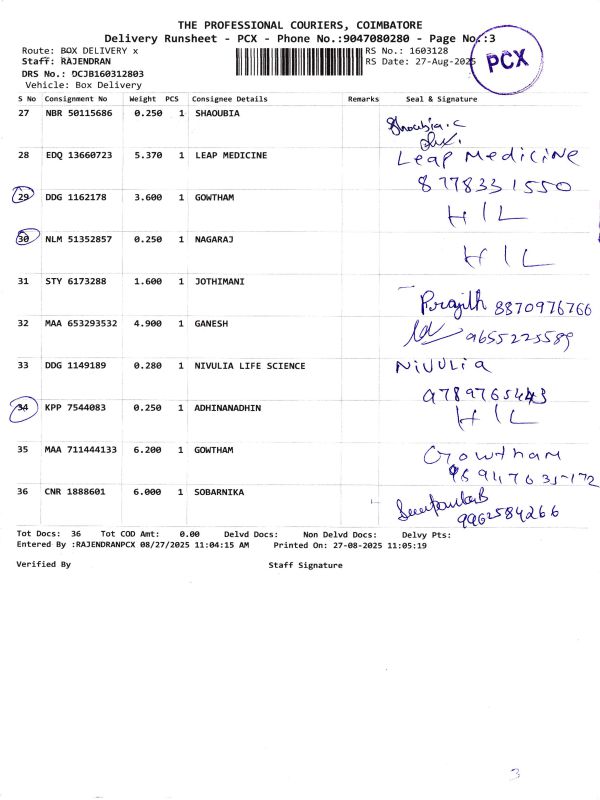 THE PROFESSIONAL COURIERS, COIMBATORE
Delivery Runsheet - PCX - Phone No.:9047080280 - Page No.:3
Route: BOX DELIVERY x
RS No.: 1603128
Staff: RAJENDRAN
RS Date: 27-Aug-2025
PCX
DRS No.: DCJB160312803
Vehicle: Box Delivery
S No Consignment No Weight PCS Consignee Details Remarks Seal & Signature
27 NBR 50115686 0.250 1 SHAOUBIA
Shoubia.C
28 EDQ 13660723 5.370 1 LEAP MEDICINE Leap Medicine
8778331550
29 DDG 1162178 3.600 1 GOWTHAM
H I L
30 NLM 51352857 0.250 1 NAGARAJ
H I L
31 STY 6173288 1.600 1 JOTHIMANI
Prajith 8870976766
32 MAA 653293532 4.900 1 GANESH
9655225589
33 DDG 1149189 0.280 1 NIVULIA LIFE SCIENCE NiVULia
9789765443
34 KPP 7544083 0.250 1 ADHINANADHIN
H I L
35 MAA 711444133 6.200 1 GOWTHAM Gowtham
36 CNR 1888601 6.000 1 SOBARNIKA
9962584266
Tot Docs: 36 Tot COD Amt: 0.00 Delvd Docs: Non Delvd Docs: Delvy Pts:
Entered By :RAJENDRANPCX 08/27/2025 11:04:15 AM Printed On: 27-08-2025 11:05:19
Verified By Staff Signature
3